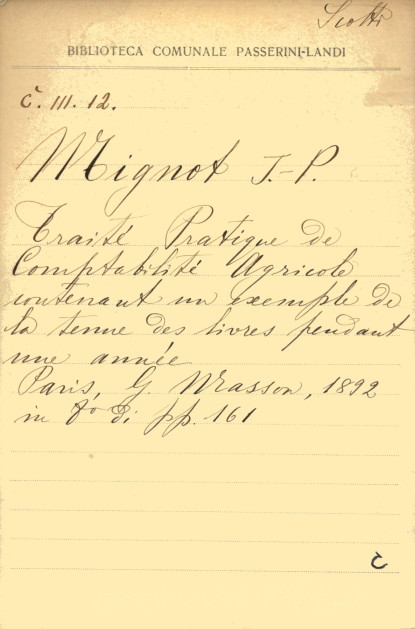 Scotti
BIBLIOTECA COMUNALE PASSERINI-LANDI
C̆. III. 12.
Mignot J.-P.
Traité Pratique de
Comptabilité Agricole
contenant un exemple de
la tenue des livres pendant
une année
Paris, G. Masson, 1892
in 8º di pp. 161
C̆